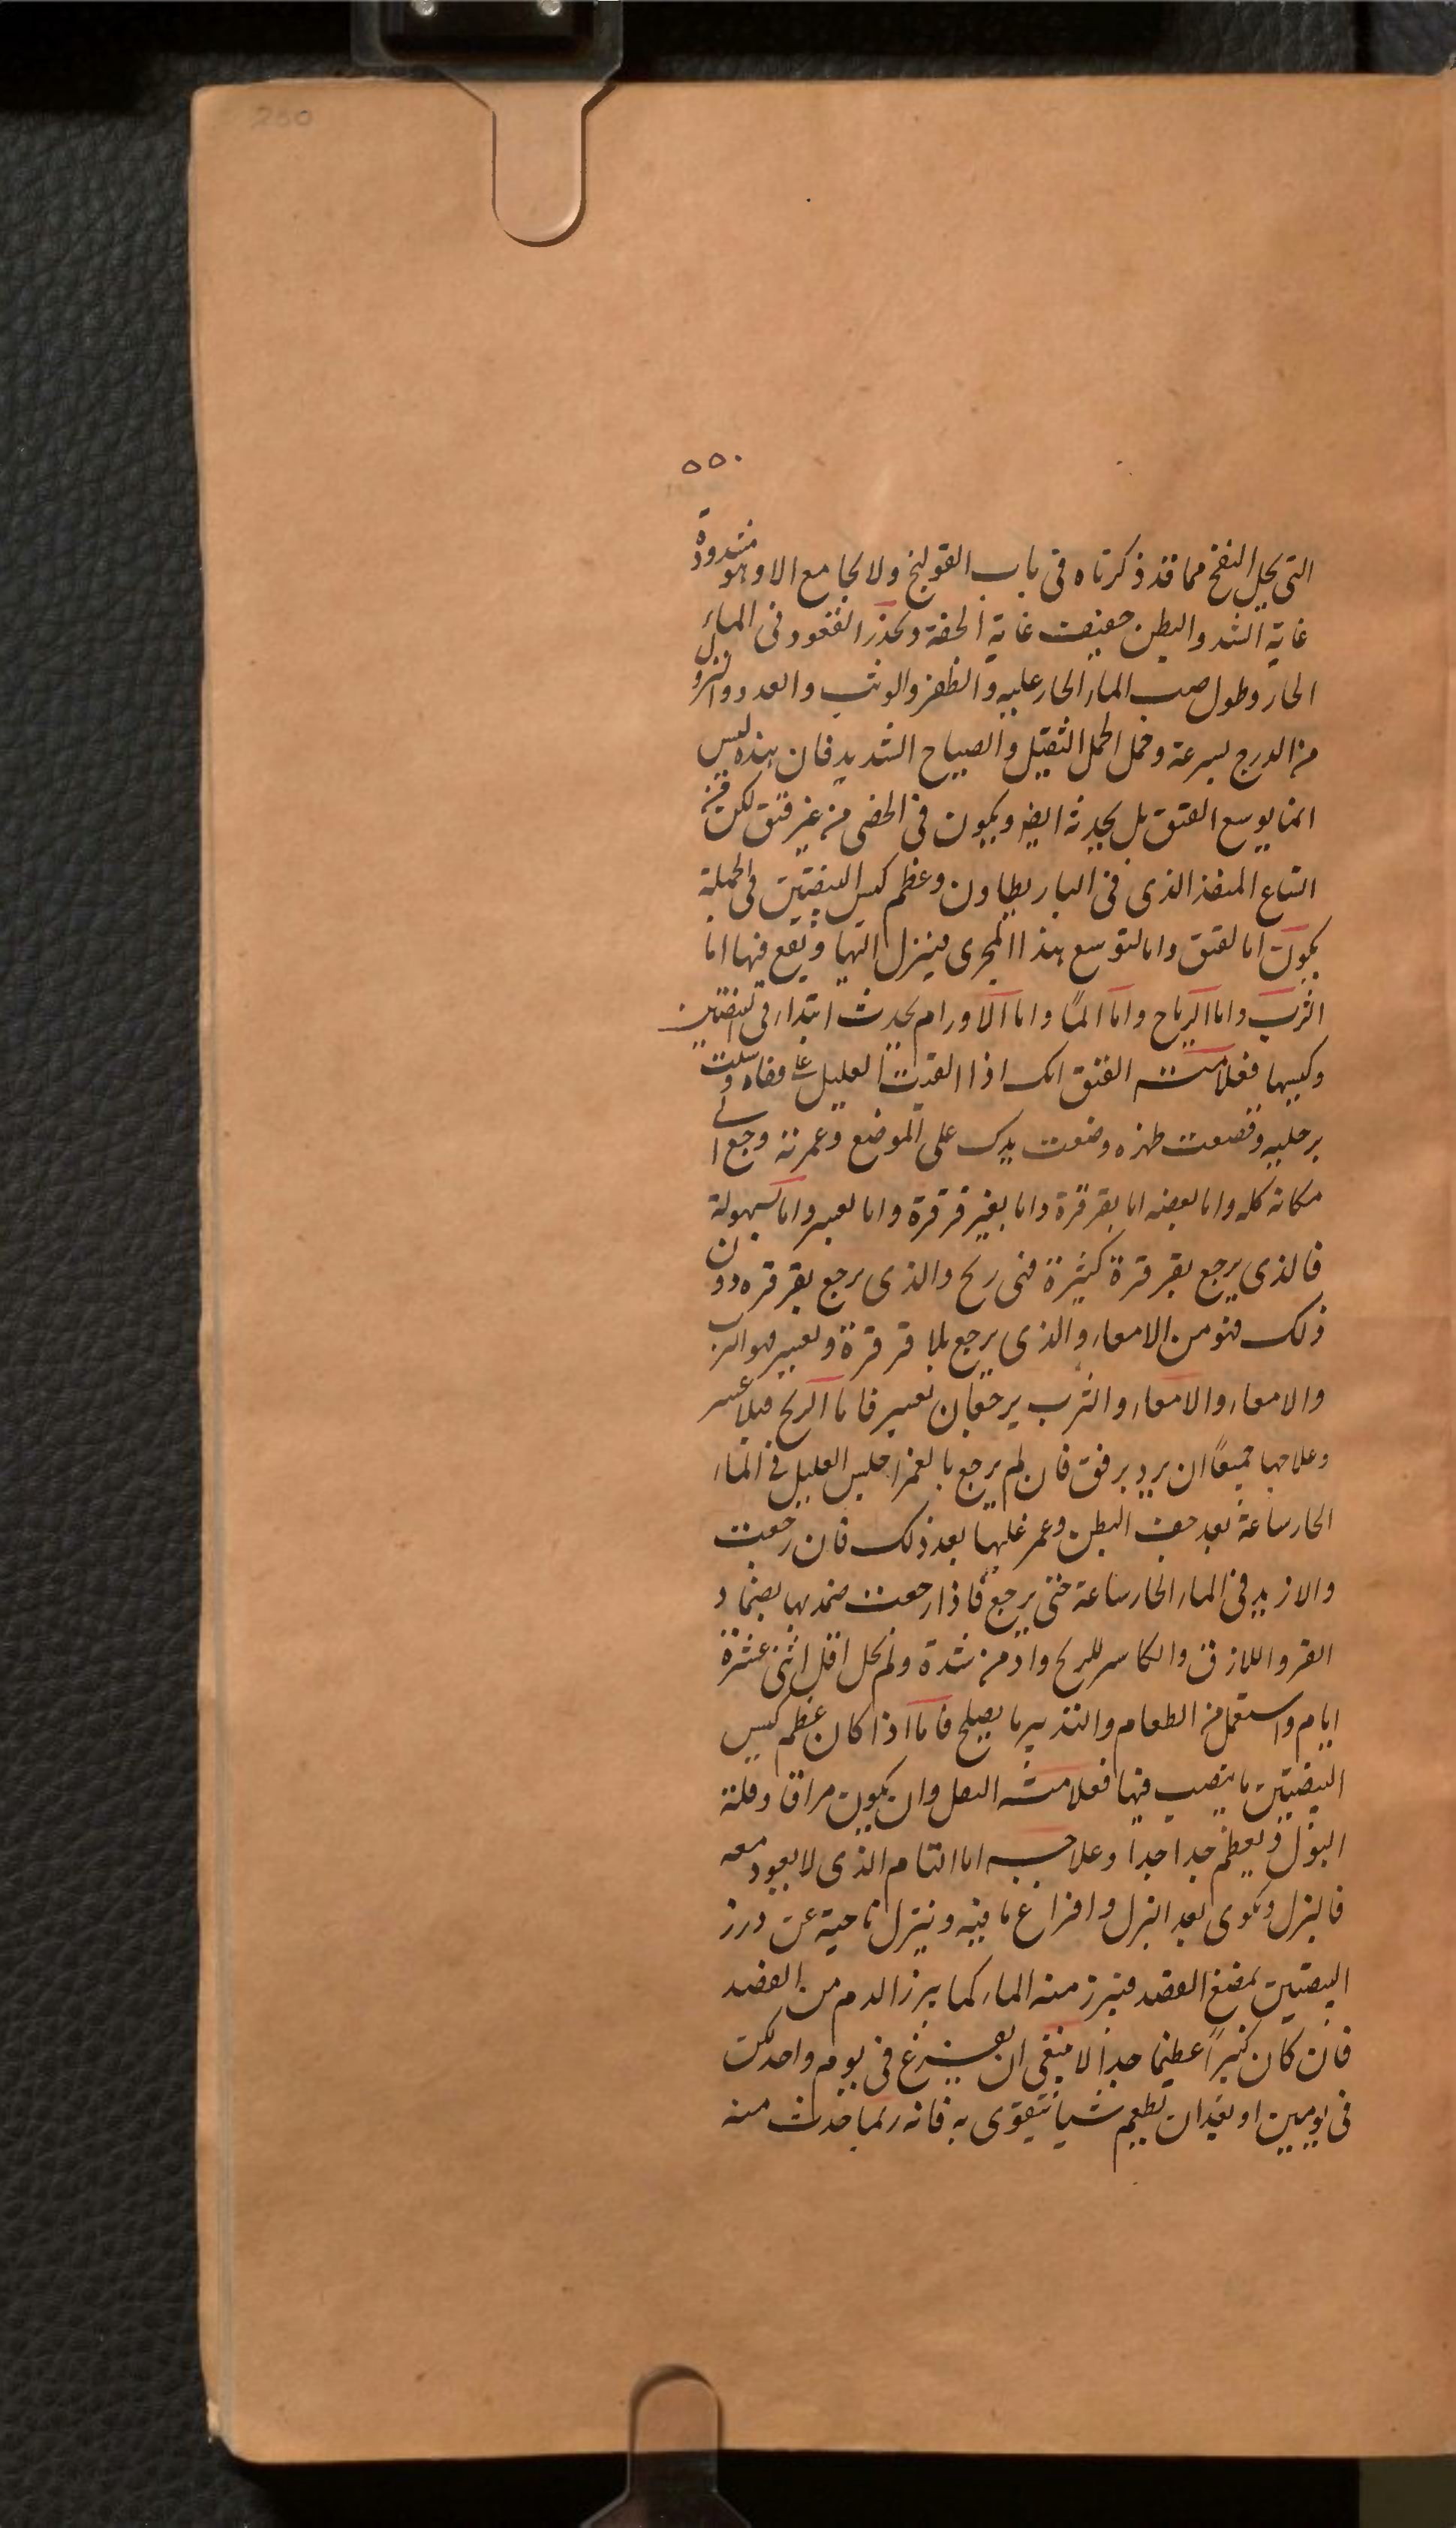 250
٥٥٠
التى يحل النفخ مما قد ذكرناه فى باب القولنج ولا يجامع الا وهو مشدودة
غاية الشد والبطن خفيفت غاية الخفة ويحذر القعود فى الماء
الحار وطول صب الماء الحار عليه والطفر والوثب والعدو والنزول
من الدرج بسرعة وحمل الحمل الثقيل والصياح الشديد فان هذه ليس
انما يوسع الفتق بل يحدثه ايضا ويكون فى الخصى من غير فتق لكن من
اتساع المنفذ الذى فى الباريطاون وعظم كيس البيضتين فى الجملة
يكون اما لفتق واما لتوسع هذا المجرى فينزل اليها ويقع فيها اما
الثرب واما الرياح واما الما واما الاورام يحدث ابتداء فى البيضتين
وكيسها فعلامت الفتق انك اذا القيت العليل على قفاه وسلت
برجليه وقصعت ظهره وضعت يدك على الموضع وغمزته رجع الى
مكانه كله واما بعضه اما بقرقرة واما بغير قرقرة واما بعسر واما بسهولة
فالذى يرجع بقرقرة كثيرة فهى ريح والذى يرجع بقرقره دون
ذلك فهو من الامعاء والذى يرجع بلا قرقرة وبعسر فهو الثرب
والامعاء والامعاء والثرب يرجعان بعسر فاما الريح فبلا عسر
وعلاجها جميعًا ان يرد برفق فان لم يرجع بالغمز اجلس العليل فى الماء
الحار ساعة بعد خف البطن وغمز عليها بعد ذلك فان رجعت
والا زيد فى الماء الحار ساعة حتى يرجع فاذا رجعت ضمد بها بضماد
الفرو اللازق والكاسر للريح وادمن شدة ولم يحل اقل اثنى عشرة
ايام واستعمل من الطعام والتدبير ما يصلح فاما اذا كان عظم كيس
البيضتين ما ينصب فيها فعلامته الثقل وان يكون مراقا وقلة
البول ويعظم جدا جدا وعلاجه اما التام الذى لا يعود معه
فالبزل ويكوى بعد البزل وافراغ ما فيه وينزل ناحية عن درز
البيضتين بمبضع الفصد فيبرز منه الماء كما يبرز الدم من الفصد
فان كان كثيرًا عظيما جدا لا ينبغى ان يفرغ فى يوم واحد لكن
فى يومين او بعد ان يطعم شيا يتقوى به فانه ربما حدث منه